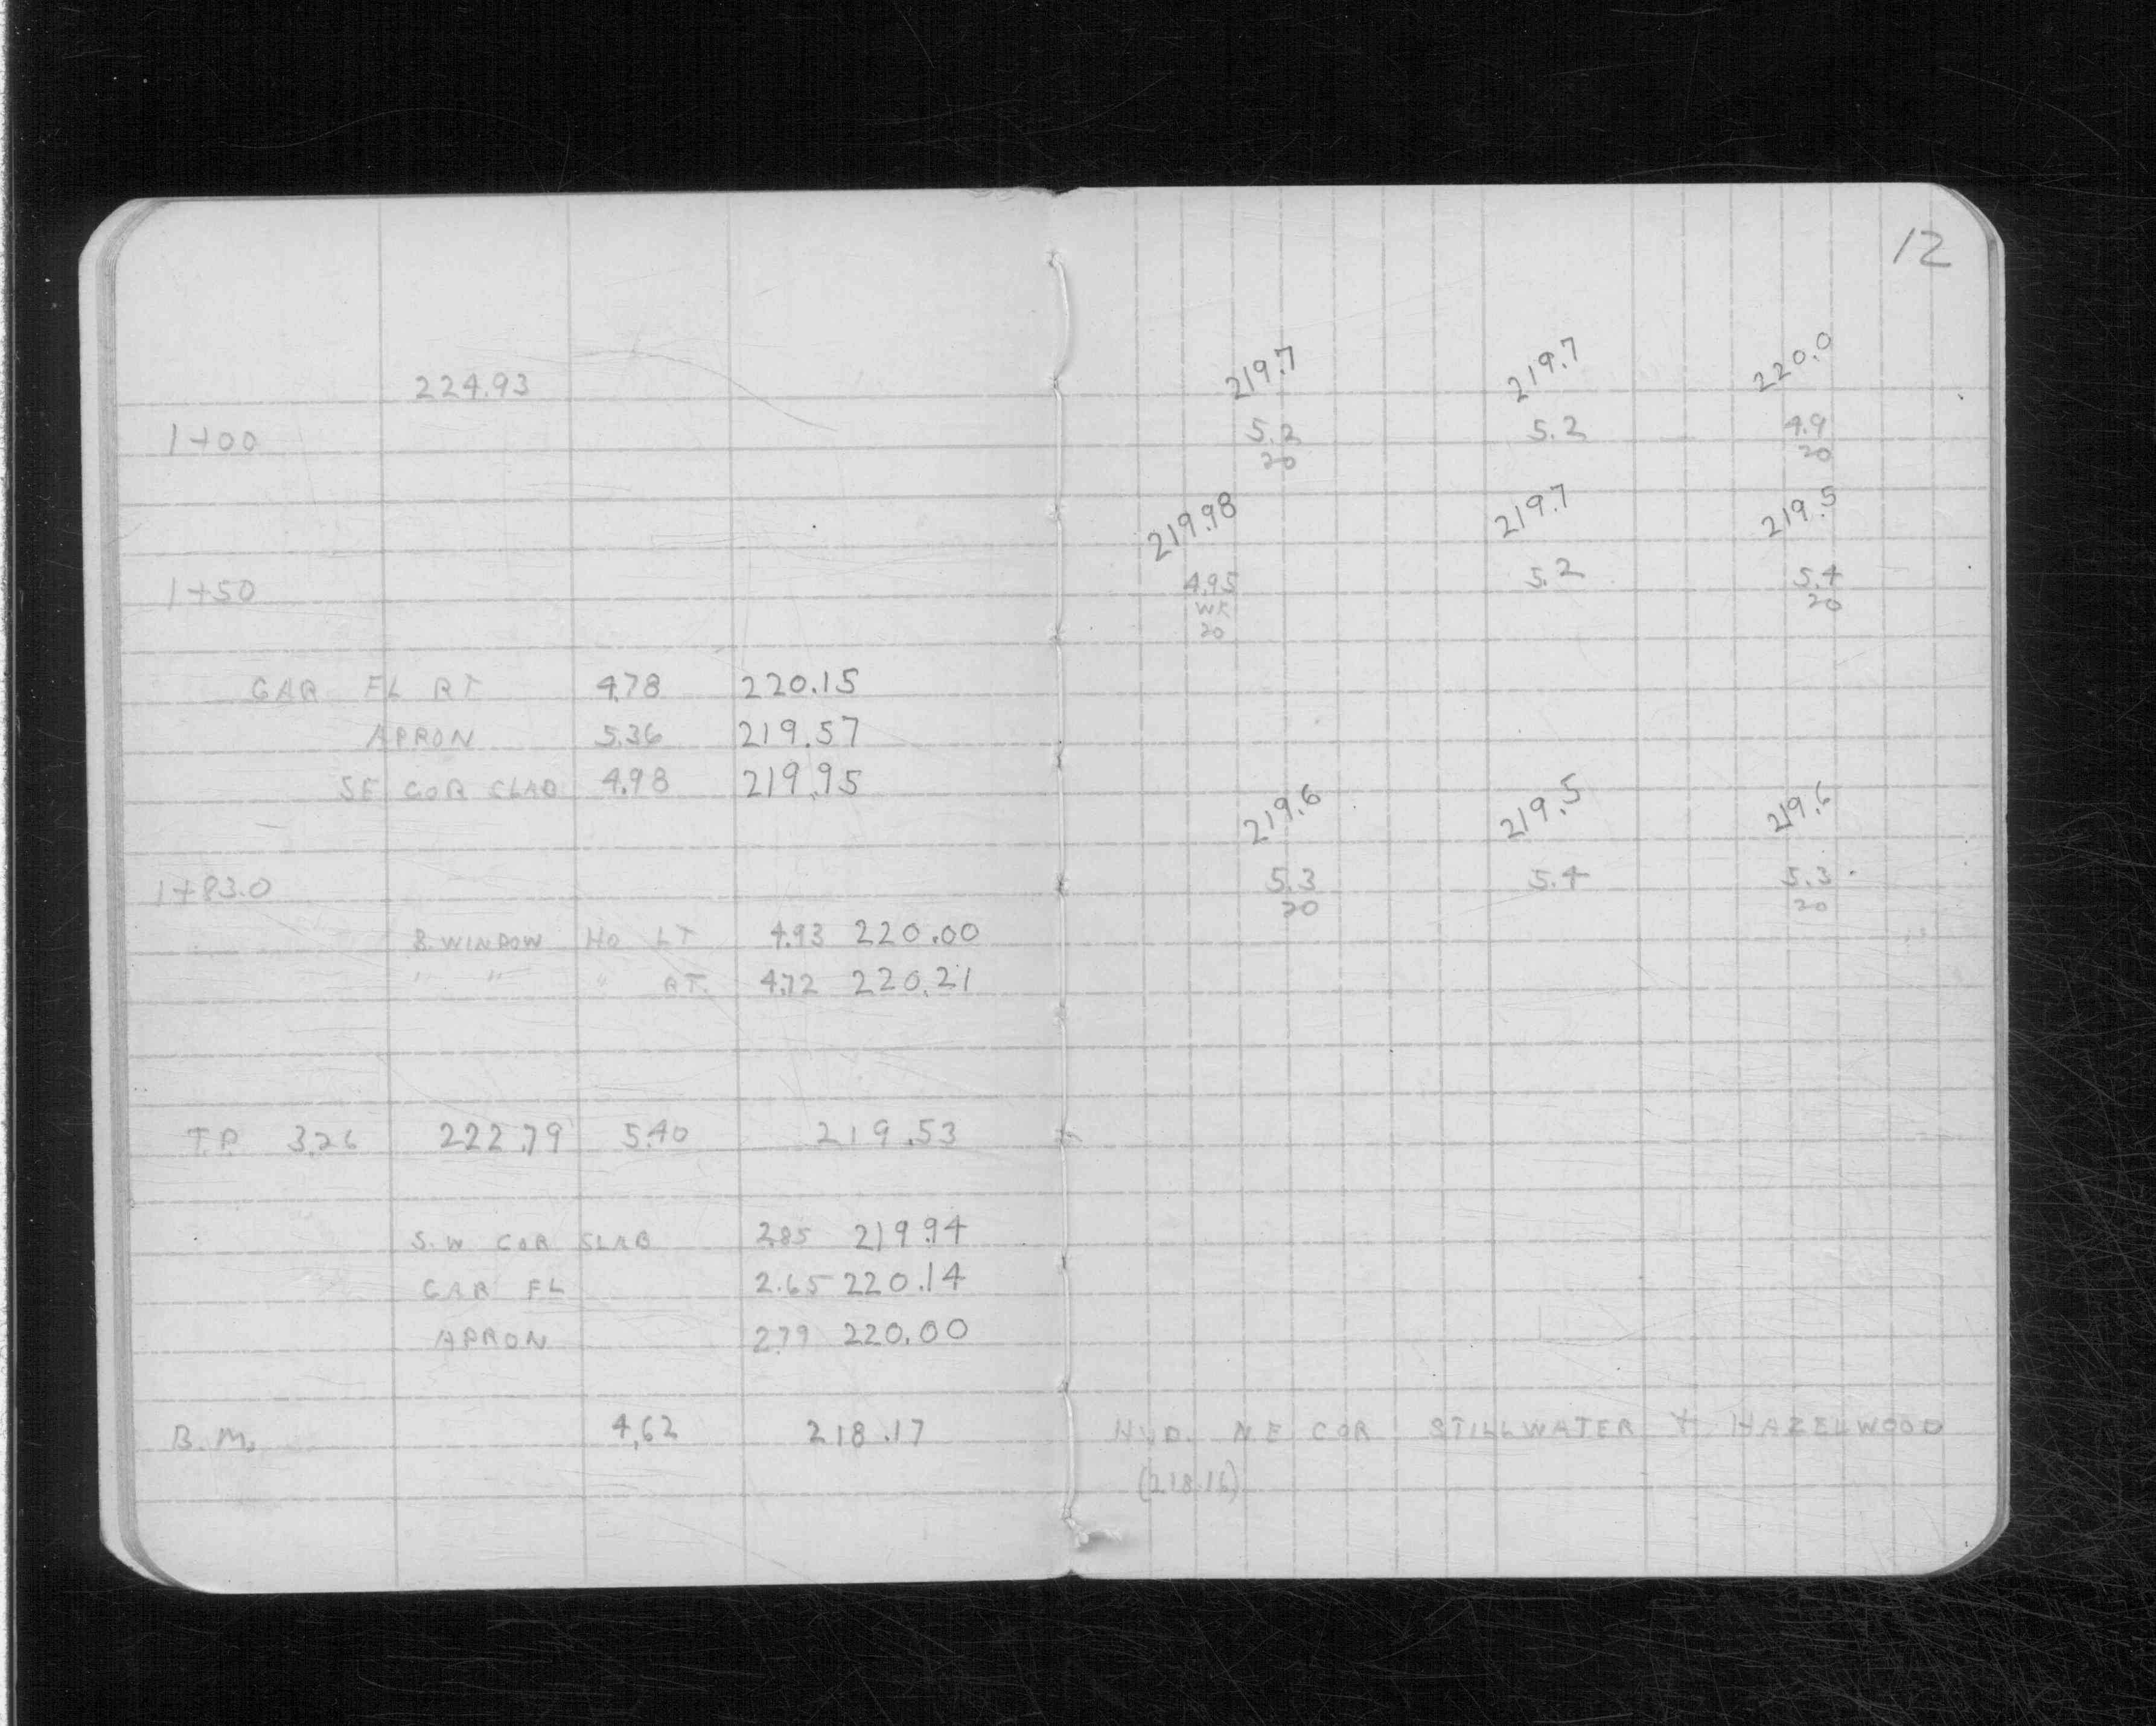 12
224.93 219.7 219.7 220.0
1+00 5.2 5.2 4.9
20 20
219.98 219.7 219.5
1+50 4.95 5.2 5.4
WK 20
20
GAR FL RT 4.78 220.15
APRON 5.36 219.57
SE COR SLAB 4.98 219.95
219.6 219.5 219.6
1+83.0 5.3 5.4 5.3
20 20
B. WINDOW HO LT 4.93 220.00
" " " RT. 4.72 220.21
T.P. 3.26 222.79 5.40 219.53
S.W COR SLAB 2.85 219.94
GAR FL 2.65 220.14
APRON 2.79 220.00
B.M. 4.62 218.17 HYD. NE COR STILLWATER + HAZELWOOD
(218.16)